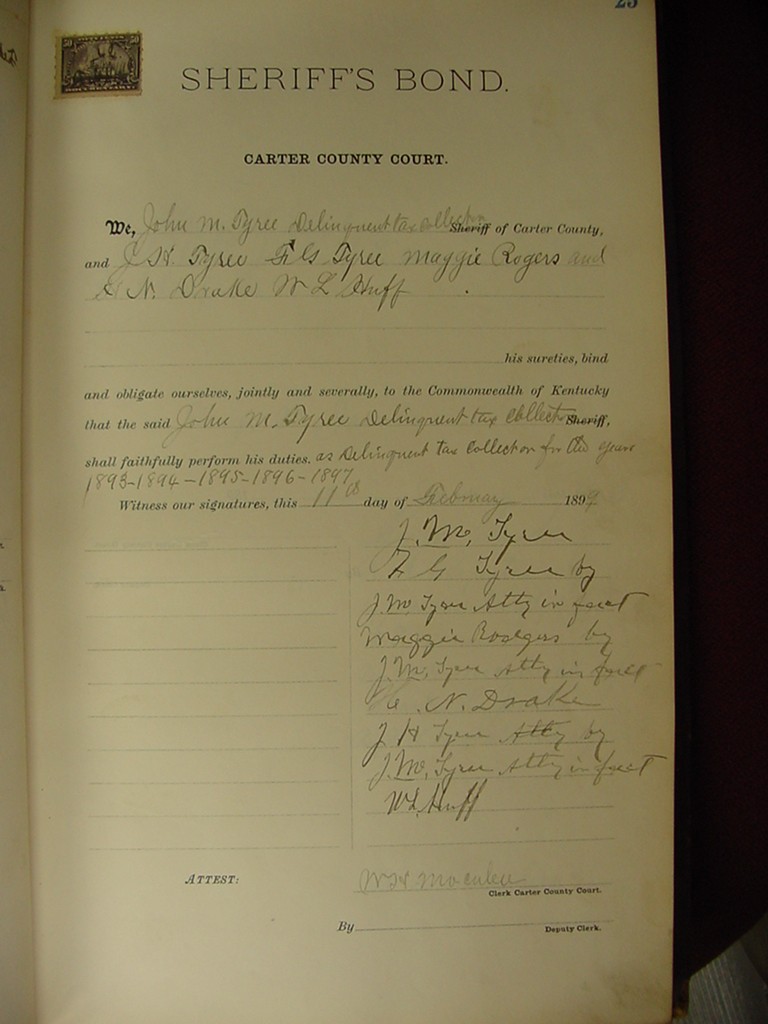 25
50 50
SHERIFF'S BOND.
CARTER COUNTY COURT.
We, John M. Tyree Delinquent tax collector Sheriff of Carter County,
and J H Tyree F G Tyree Maggie Rogers and
N. Drake W L Huff
his sureties, bind
and obligate ourselves, jointly and severally, to the Commonwealth of Kentucky
that the said John M. Tyree Delinquent tax Collector Sheriff,
shall faithfully perform his duties. as Delinquent tax Collector for the years
1893-1894-1895-1896-1897
Witness our signatures, this 11th day of February 1899
J. M. Tyree
F G Tyree by
J M Tyree Atty in fact
Maggie Rodgers by
J. M. Tyree Atty in fact
N. Drake
J H Tyree Atty by
J. M. Tyree Atty in fact
W L Huff
ATTEST:
W H
Clerk Carter County Court.
By
Deputy Clerk.